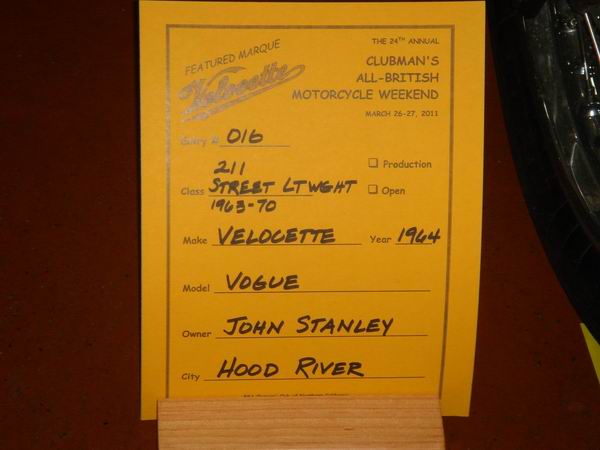 FEATURED MARQUE
Velocette
THE 24TH ANNUAL
CLUBMAN'S
ALL-BRITISH
MOTORCYCLE WEEKEND
MARCH 26-27, 2011
Entry # 016
211
Class STREET LTWGHT
1963-70
❑ Production
❑ Open
Make VELOCETTE Year 1964
Model VOGUE
Owner JOHN STANLEY
City HOOD RIVER